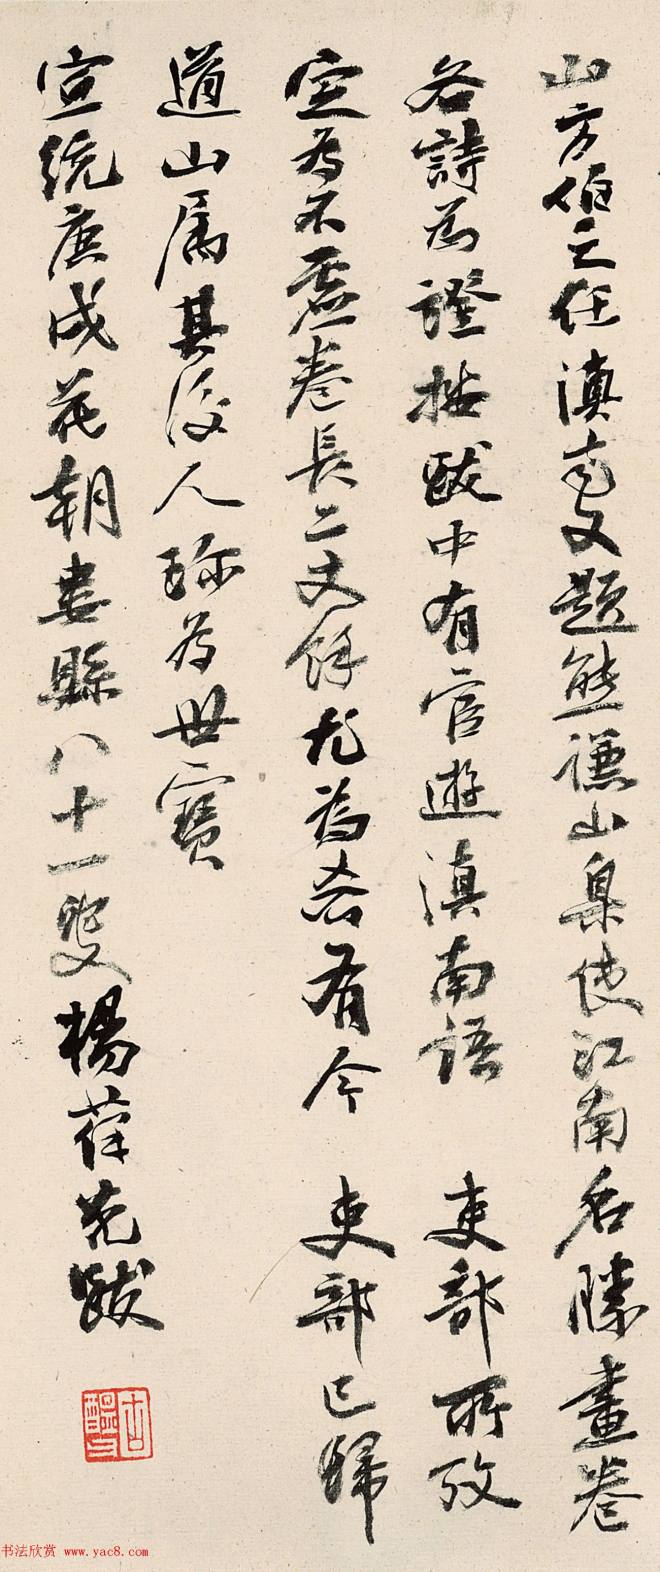 山方伯之任滇南又題熊謙山臬使江南名勝畫卷
各詩為證按跋中有官遊滇南語 吏部所攷
定為不虛卷長二丈餘尤為希有今 吏部已歸
道山屬其後人珎為世寶
宣統庚戌花朝婁縣八十一叟楊葆光跋
古醞
書法欣赏 www.yac8.com